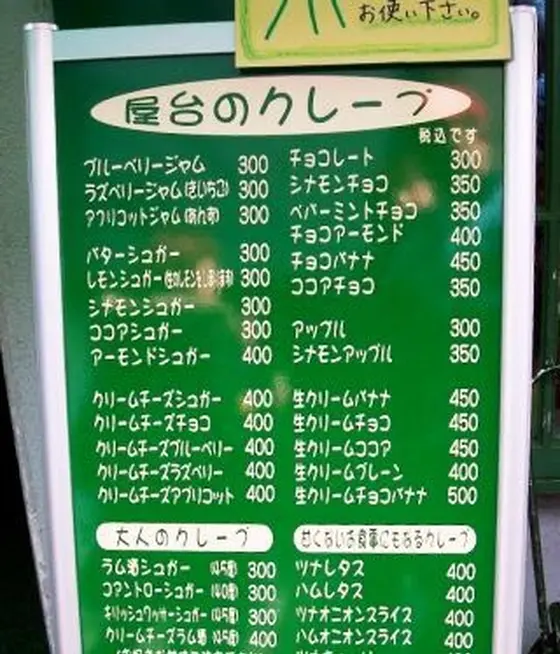 お使い下さい。
屋台のクレープ
税込です
ブルーベリージャム 300
ラズベリージャム(きいちご) 300
アプリコットジャム(あんず) 300
バターシュガー 300
レモンシュガー 300
シナモンシュガー 300
ココアシュガー 300
アーモンドシュガー 400
クリームチーズシュガー 400
クリームチーズチョコ 400
クリームチーズブルーベリー 400
クリームチーズラズベリー 400
クリームチーズアプリコット 400
チョコレート 300
シナモンチョコ 350
ペパーミントチョコ 350
チョコアーモンド 400
チョコバナナ 450
ココアチョコ 350
アップル 300
シナモンアップル 350
生クリームバナナ 450
生クリームチョコ 450
生クリームココア 450
生クリームプレーン 400
生クリームチョコバナナ 500
大人のクレープ
ラム酒シュガー (45度) 300
コアントローシュガー (40度) 300
キルッシュワッサーシュガー (45度) 300
クリームチーズラム酒 (45度) 400
甘くないお食事にもなるクレープ
ツナレタス 400
ハムレタス 400
ツナオニオンスライス 400
ハムオニオンスライス 400